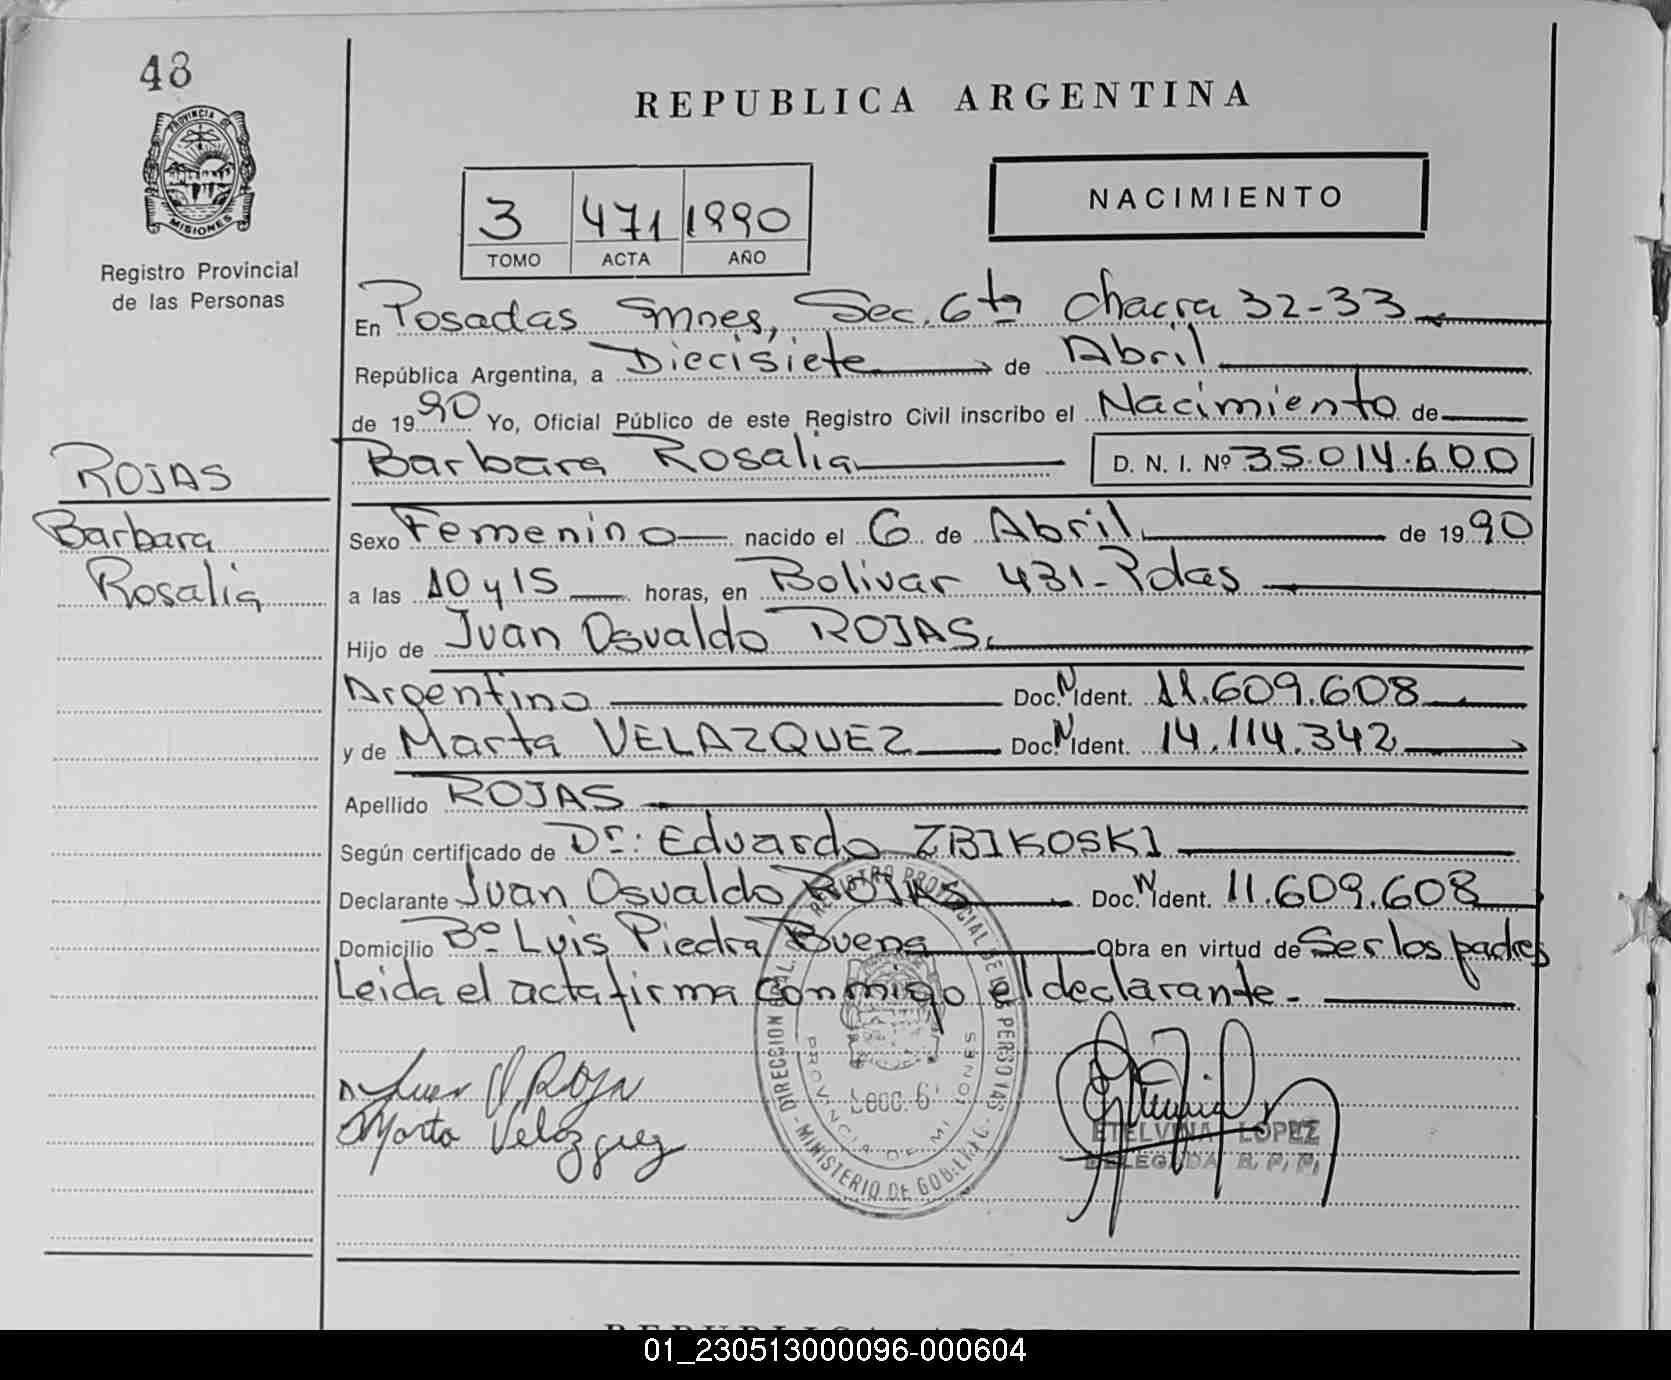 48
PROVINCIA DE
MISIONES
Registro Provincial
de las Personas
REPUBLICA ARGENTINA
3 471 1990
TOMO ACTA AÑO
NACIMIENTO
En Posadas Smnes, Sec. 6ta Chacra 32-33
República Argentina, a Diecisiete de Abril
de 1990 Yo, Oficial Público de este Registro Civil inscribo el Nacimiento de
Barbara Rosalia D. N. I. Nº 35.014.600
ROJAS
Barbara
Rosalia
Sexo Femenino nacido el 6 de Abril de 1990
a las 10 y 15 horas, en Bolivar 431-Pdas
Hijo de Juan Osvaldo ROJAS.
Argentino Doc. N Ident. 11.609.608
y de Marta VELAZQUEZ Doc. N Ident. 14.114.342
Apellido ROJAS
Según certificado de Dr: Eduardo ZBIKOSKI
Declarante Juan Osvaldo ROJAS Doc. N Ident. 11.609.608
Domicilio Bº Luis Piedra Buena Obra en virtud de Ser los padres
Leida el acta firma conmigo el declarante.-
Marta Velazquez
REGISTRO PROVINCIAL DE LAS PERSONAS
PROVINCIA DE MISIONES
ETELVINA LOPEZ
DELEGADA R. P. P.
REPUBLICA
01_230513000096-000604